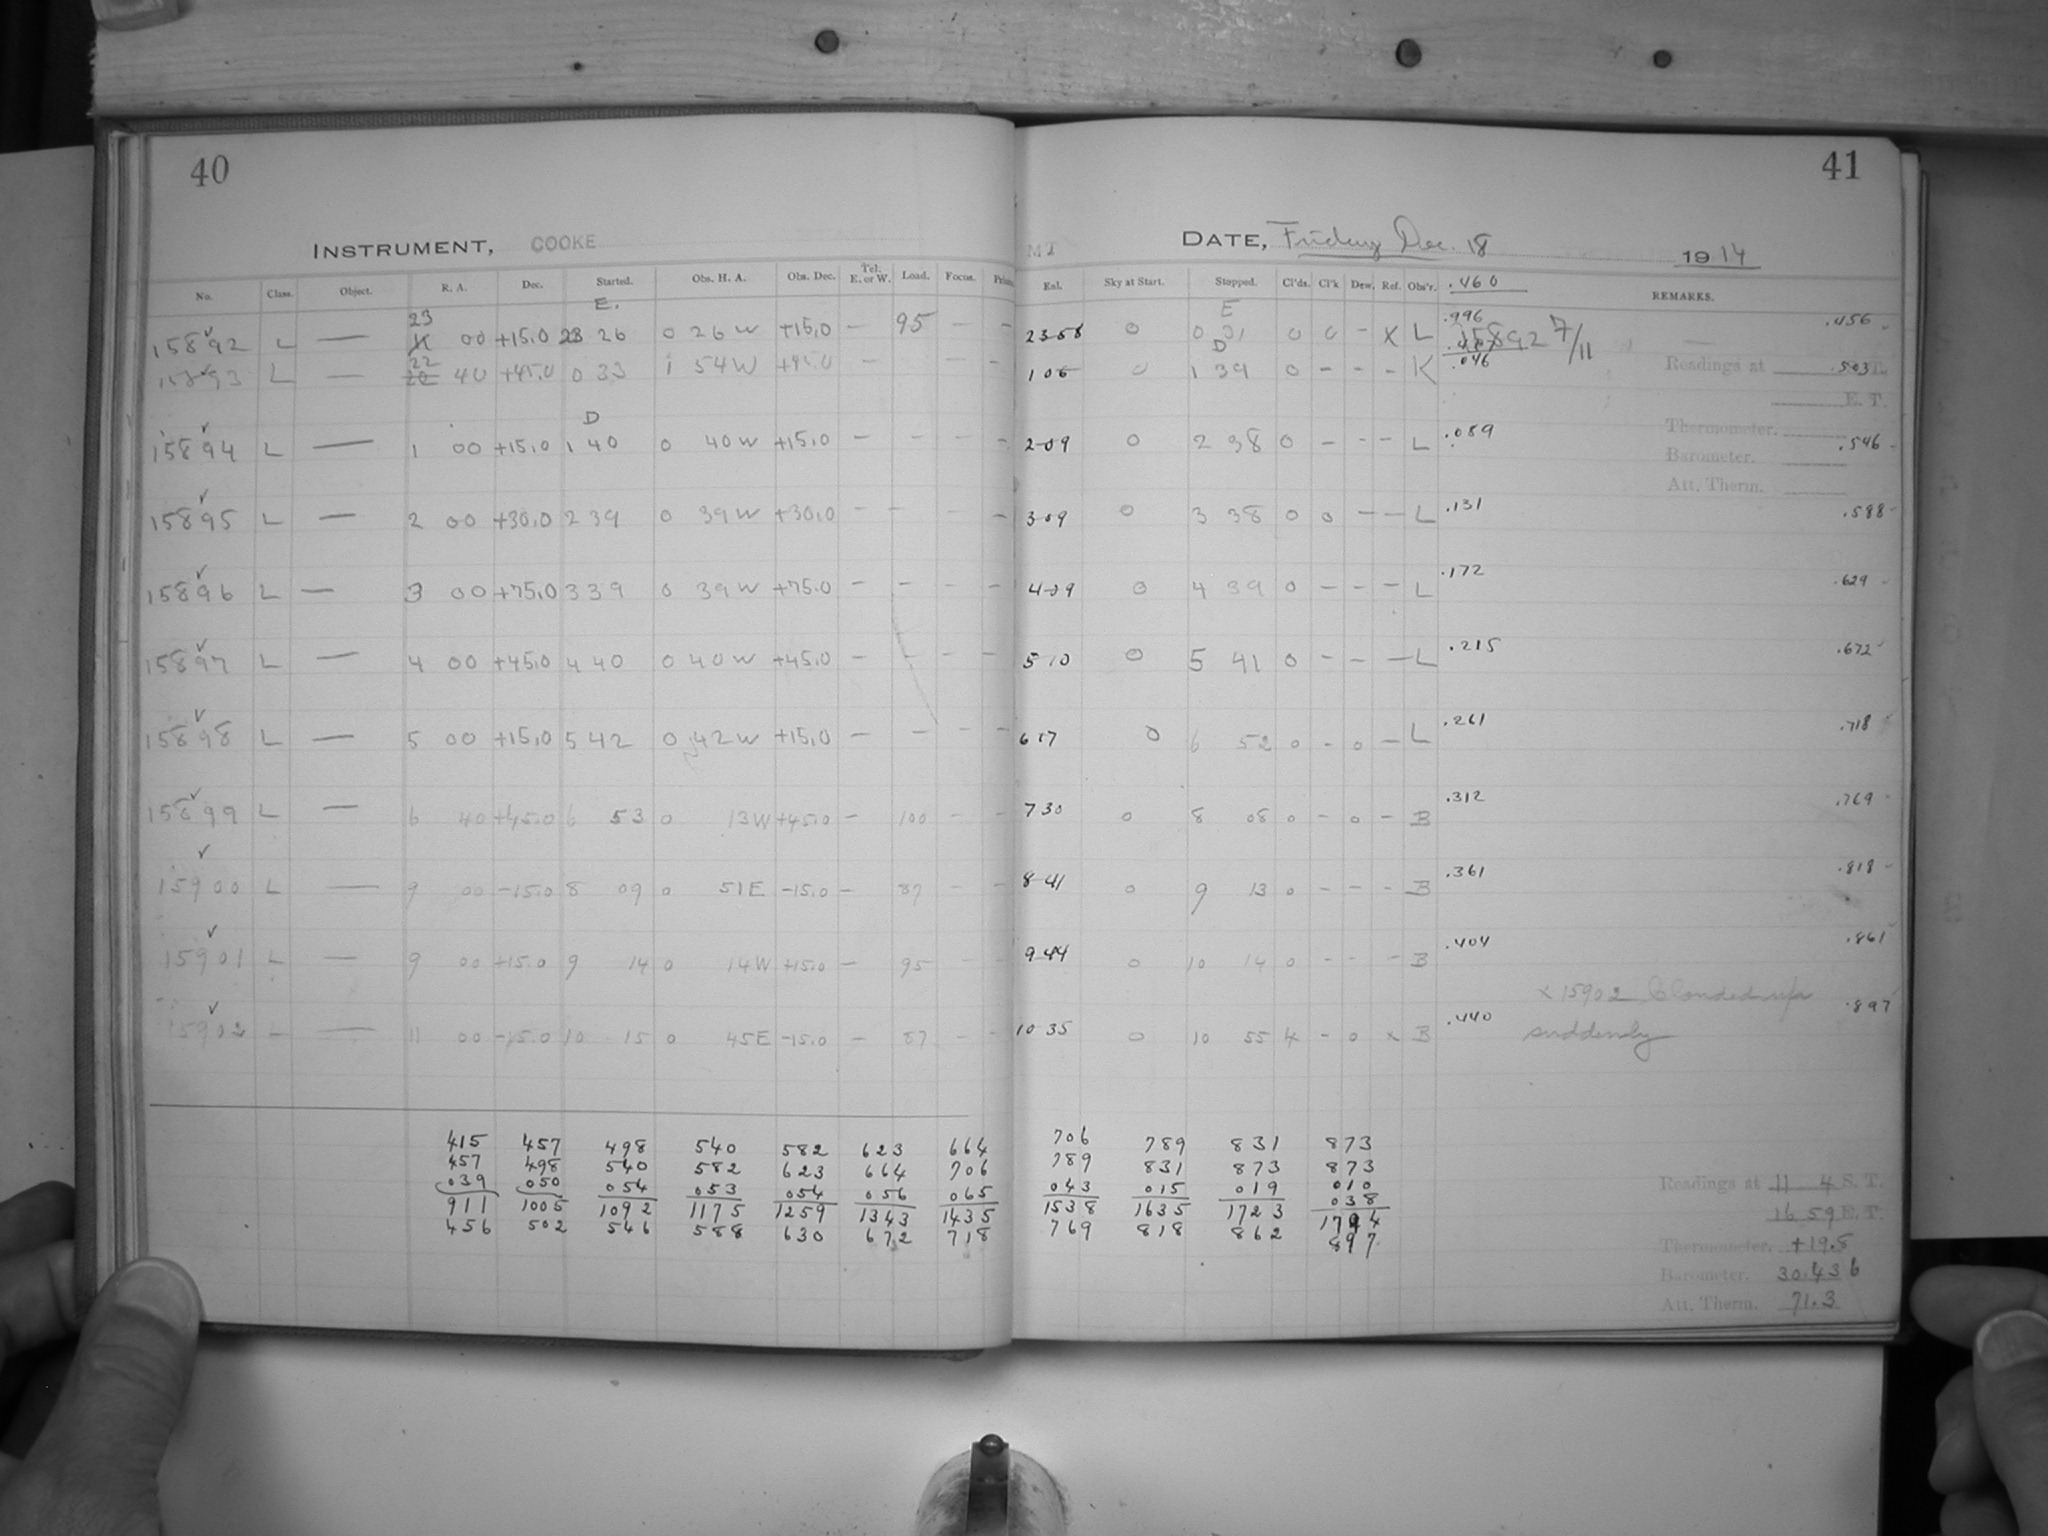 40
INSTRUMENT, COOKE
No. Class. Object. R. A. Dec. Started. Obs. H. A. Obs. Dec. Tel. E. or W. Load. Focus.
E.
23
15892 L — 00 +15.0 23 26 0 26 W +15.0 — 95 — —
22
15893 L — 20 40 +45.0 0 33 1 54 W +45.0 — — —
D
15894 L — 1 00 +15.0 1 40 0 40 W +15.0 — — — —
15895 L — 2 00 +30.0 2 39 0 39 W +30.0 — — — —
15896 L — 3 00 +75.0 3 39 0 39 W +75.0 — — — —
15897 L — 4 00 +45.0 4 40 0 40 W +45.0 — — — —
15898 L — 5 00 +15.0 5 42 0 42 W +15.0 — — — —
15899 L — 6 40 +45.0 6 53 0 13 W +45.0 — 100 — —
15900 L — 9 00 -15.0 8 09 0 51 E -15.0 — 87 — —
15901 L — 9 00 +15.0 9 14 0 14 W +15.0 — 95 — —
15902 — — 11 00 -15.0 10 15 0 45 E -15.0 — 87 — —
415 457 498 540 582 623 664
457 498 540 582 623 664 706
039 050 054 053 054 056 065
911 1005 1092 1175 1259 1343 1435
456 502 546 588 630 672 718
41
DATE, Friday Dec. 18 1914
Sky at Start. Stopped. Cl'ds. Cl'k Dew. Ref. Obs'r. .460 REMARKS.
E
23 58 0 0 31 0 0 — X L .996 15892 7/11 .456
D
1 06 0 1 39 0 — — — K .046 Readings at .503
E. T.
Thermometer.
2 09 0 2 38 0 — — — L .089 .546
Barometer.
Att. Therm.
3 09 0 3 38 0 0 — — L .131 .588
4 09 0 4 39 0 — — — L .172 .629
5 10 0 5 41 0 — — — L .215 .672
6 17 0 6 52 0 — 0 — L .261 .718
7 30 0 8 08 0 — 0 — B .312 .769
8 41 0 9 13 0 — — — B .361 .818
9 44 0 10 14 0 — — — B .404 .861
x 15902 Clouded up
10 35 0 10 55 4 — 0 x B .440 suddenly .897
706 789 831 873
789 831 873 873
043 015 019 010
038
1538 1635 1723 1794
769 818 862 897
Readings at 11 4 S. T.
16 59 E. T.
Thermometer. +19.8
Barometer. 30.436
Att. Therm. 71.3